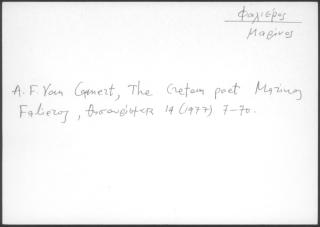 Φαλιέρος
Μαρίνος
A. F. Van Gemert, The Cretan poet Marinos
Falieros, Θησαυρίσματα 14 (1977) 7-70.